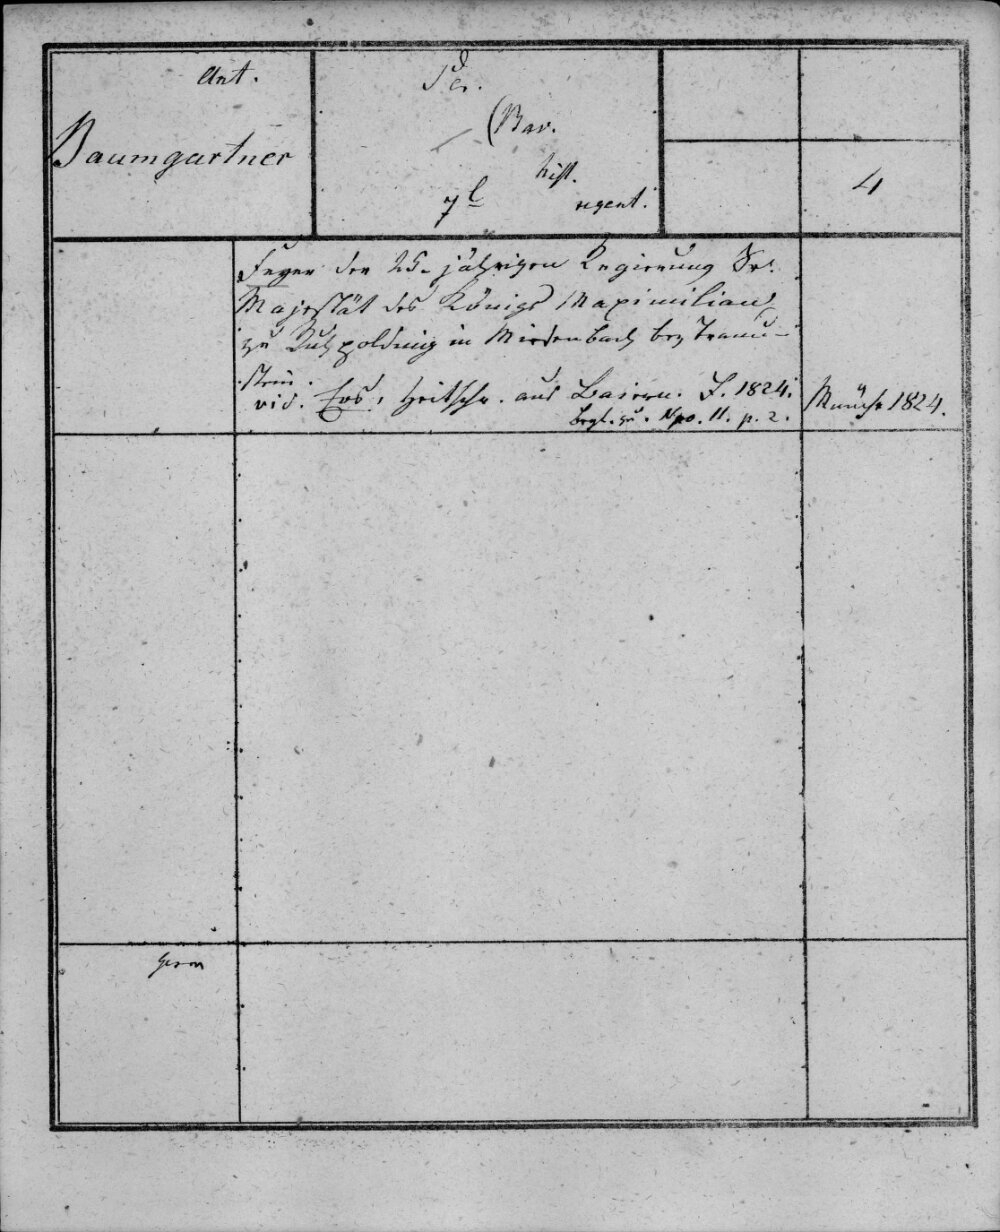 Ant.
Baumgartner
(Bav.
hist.
regent.
7
4
Feyer der 25-jährigen Regierung Sr.
Majestät des Königs Maximilian
zu Ruhpolding in Miesenbach bey Traun-
stein.
vid. Eos, Zeitschr. aus Baiern. J. 1824.
Nro. 11. p. 2.
Münch 1824.